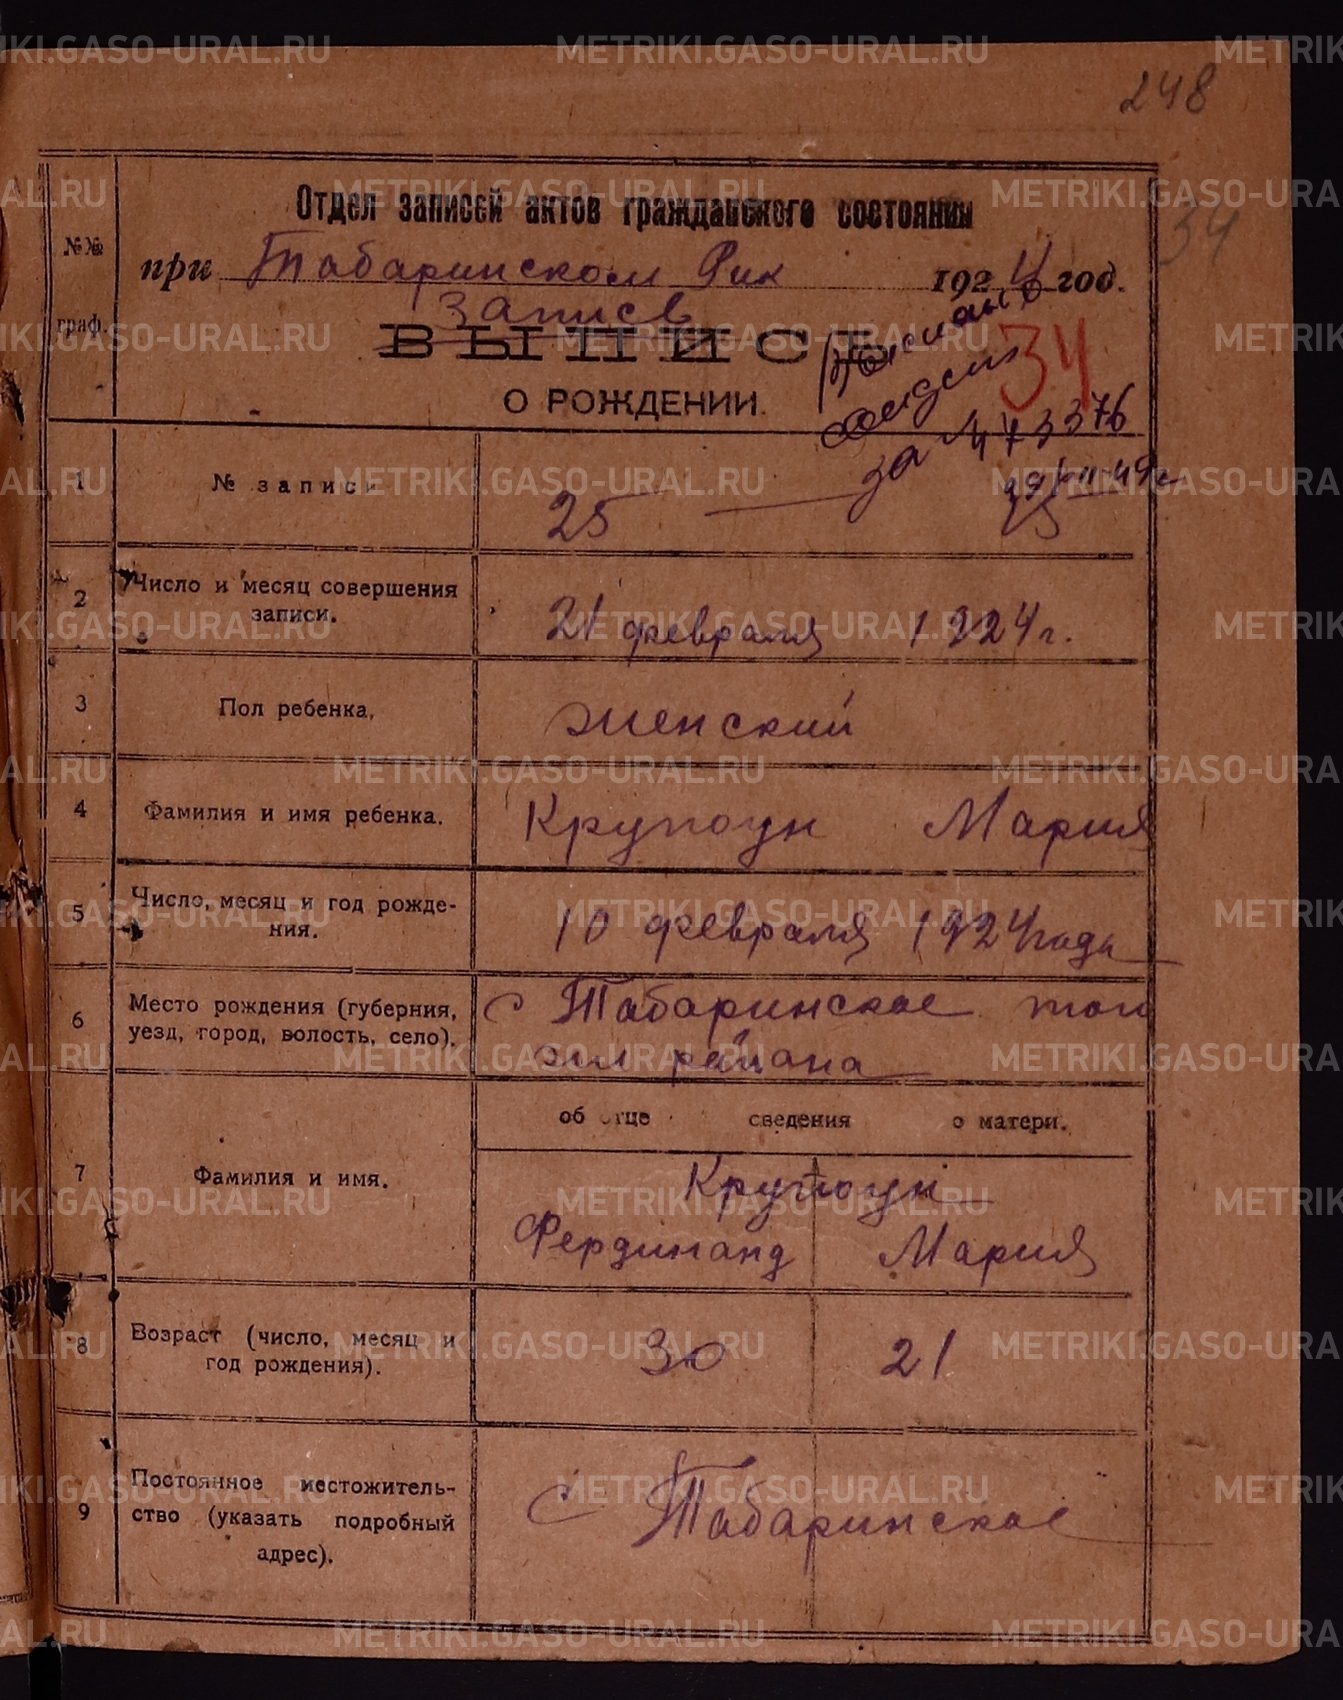 248
Отдел записей актов гражданского состояния
34
№№
граф.
при Табаринском Рик 1924 год.
запись
ВЫПИСЬ
34
О РОЖДЕНИИ.
за № 473376
1 № записи 25
2 Число и месяц совершения
записи. 21 февраля 1924 г.
3 Пол ребенка, женский
4 Фамилия и имя ребенка. Крупоун Мария
5 Число, месяц и год рожде-
ния. 10 февраля 1924 года
6 Место рождения (губерния, с Табаринское того
уезд, город, волость, село). жи района
об отце сведения о матери.
7 Фамилия и имя. Крупоун
Фердинанд Мария
8 Возраст (число, месяц и
год рождения). 30 21
9 Постоянное местожитель-
ство (указать подробный с Табаринское
адрес).
METRIKI.GASO-URAL.RU